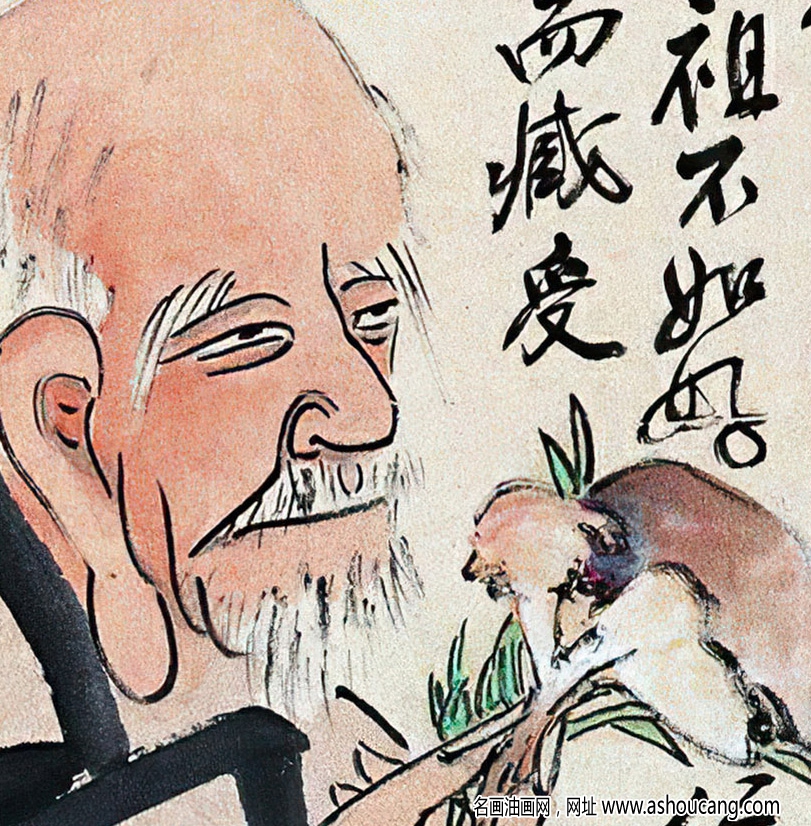 祖不如
而臧受
名画油画网，网址 www.ashoucang.com